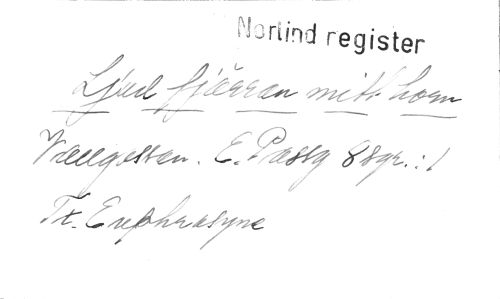 Norlind register
Ljud fjärran mitt horn
Vallgossen. E. Prässg 8 sgr. :/
Tx. Euphrosyne